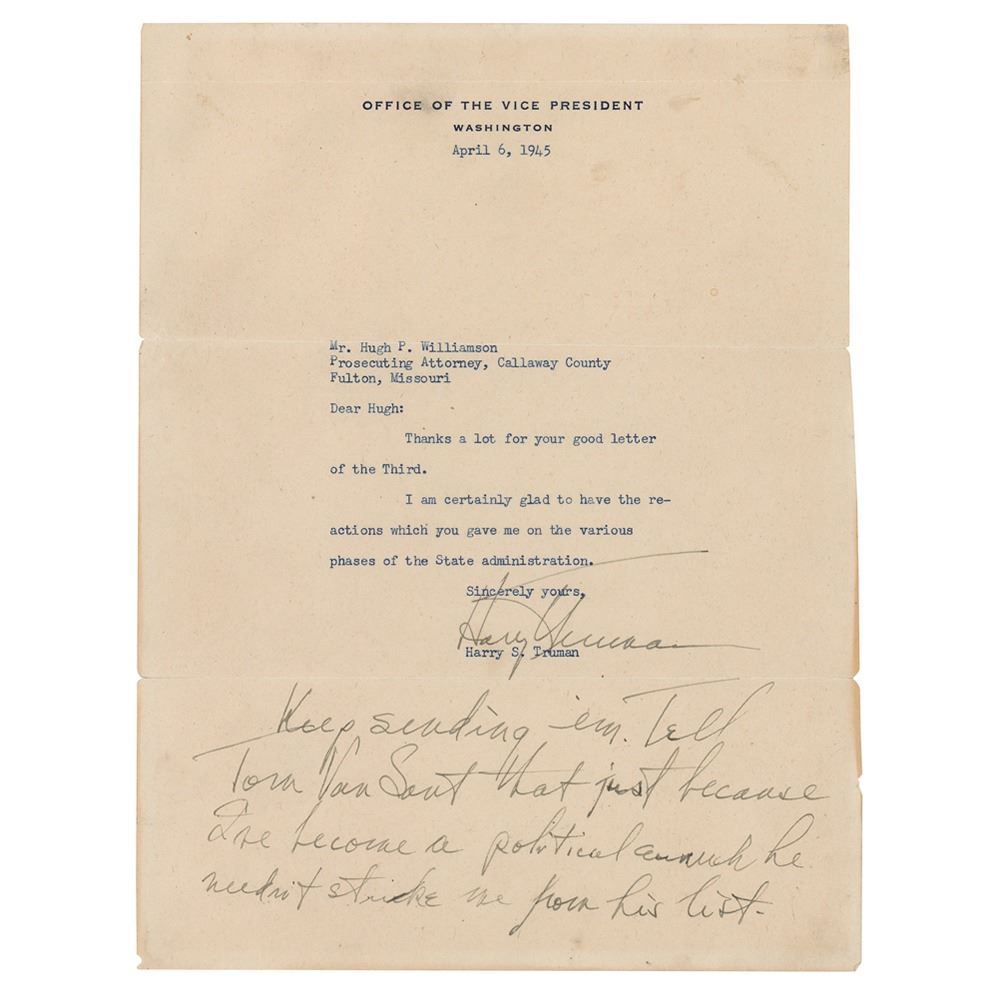 OFFICE OF THE VICE PRESIDENT
WASHINGTON
April 6, 1945
Mr. Hugh P. Williamson
Prosecuting Attorney, Callaway County
Fulton, Missouri
Dear Hugh:
Thanks a lot for your good letter
of the Third.
I am certainly glad to have the re-
actions which you gave me on the various
phases of the State administration.
Sincerely yours,
Harry Truman
Harry S. Truman
Keep sending 'em. Tell
Tom Van Sant that just because
I've become a political eunuch he
needn't strike me from his list.